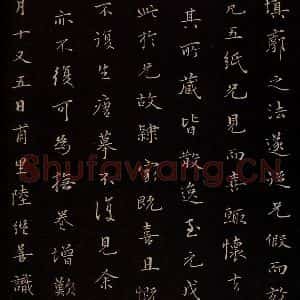 填廓之法遂從兄假而放
凡五紙兄見而喜輒懷去
其所藏皆散逸至元戊
此於兄故隸家既喜且慨
不復生唐摹不復見余
亦不復可為撫卷增歎
月十又五日甫里陸繼善識
Shufawang.CN